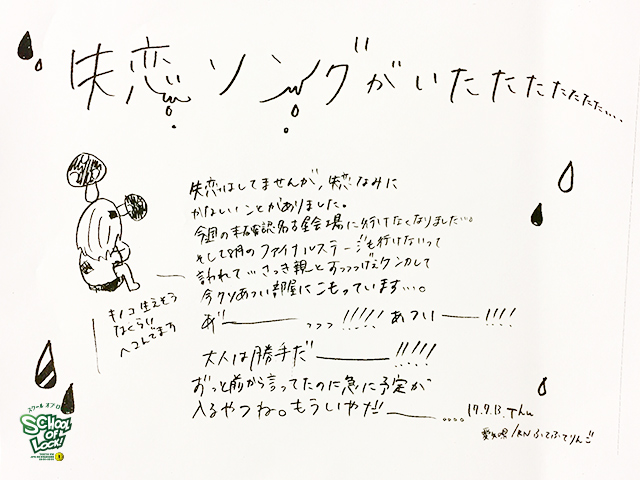 失恋ソングがいたたたたたた...
失恋はしてませんが、失恋なみに
かなしいことがありました。
今週の未確認名古屋会場に行けなくなりました…。
そして8月のファイナルステージも行けないって
言われて…さっき親とすっっっげぇケンカして
今クソあつい部屋にこもっています…。
あ゛――っっっ!!!!! あつい――!!!!
大人は勝手だ――!!!!!
ずっと前から言ってたのに急に予定が
入るやつね。もういやだ!!――....
17.7.13.Thu
愛知県/RN ふてふてりんご
キノコ生えそう
なくらい
ヘコんでます
スクール オブ ロック
SCHOOL
OF
LOCK!